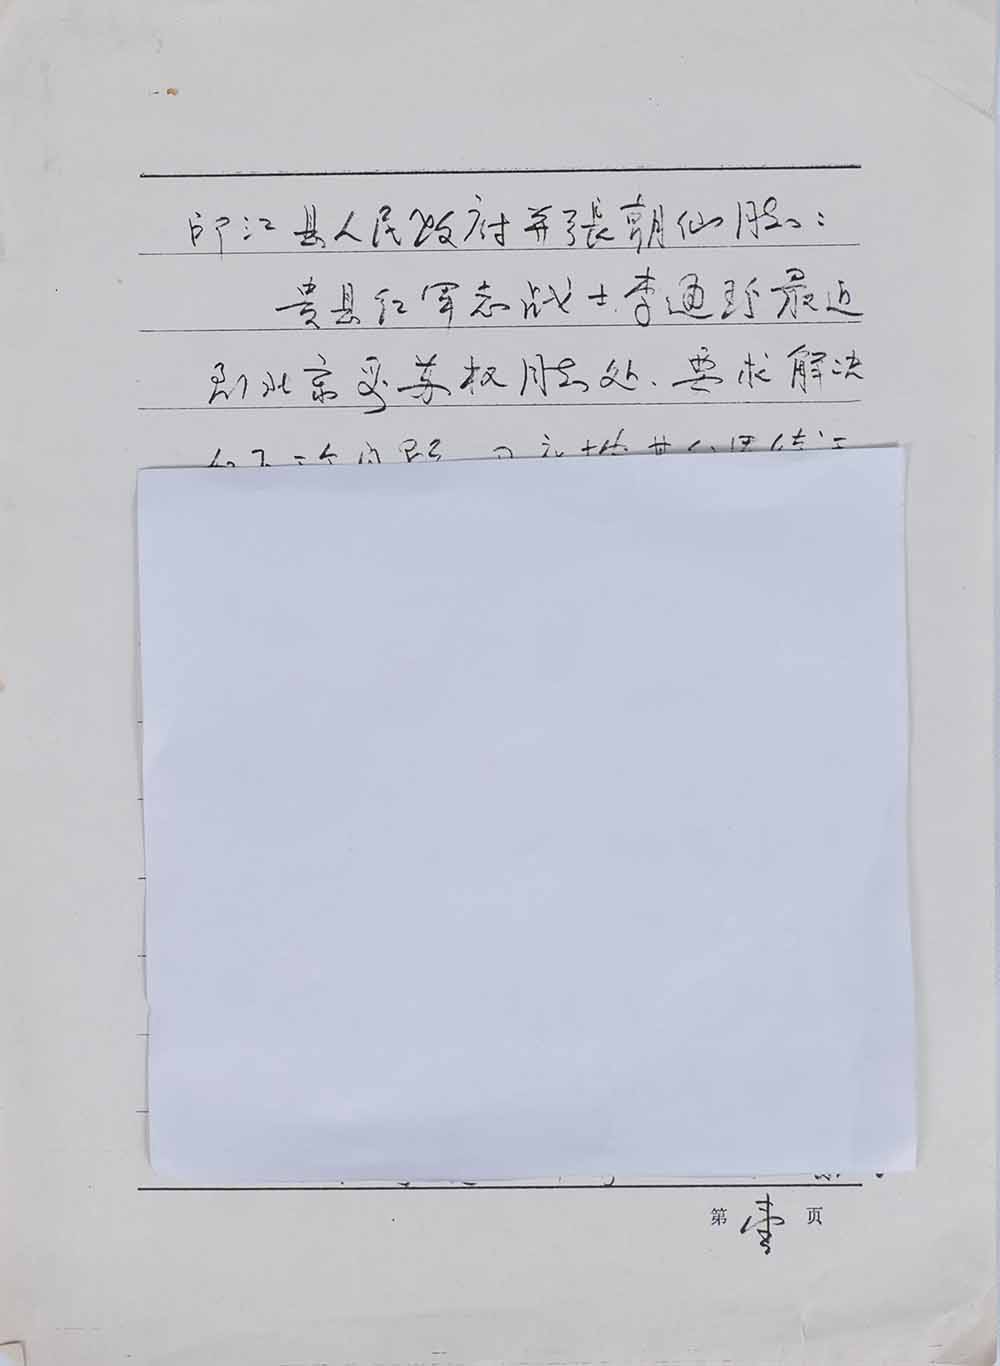 印江县人民政府并張朝仙同志:
贵县红军老战士李通珍最近
到北京 苏权同志处、要求解决
第 壹 页